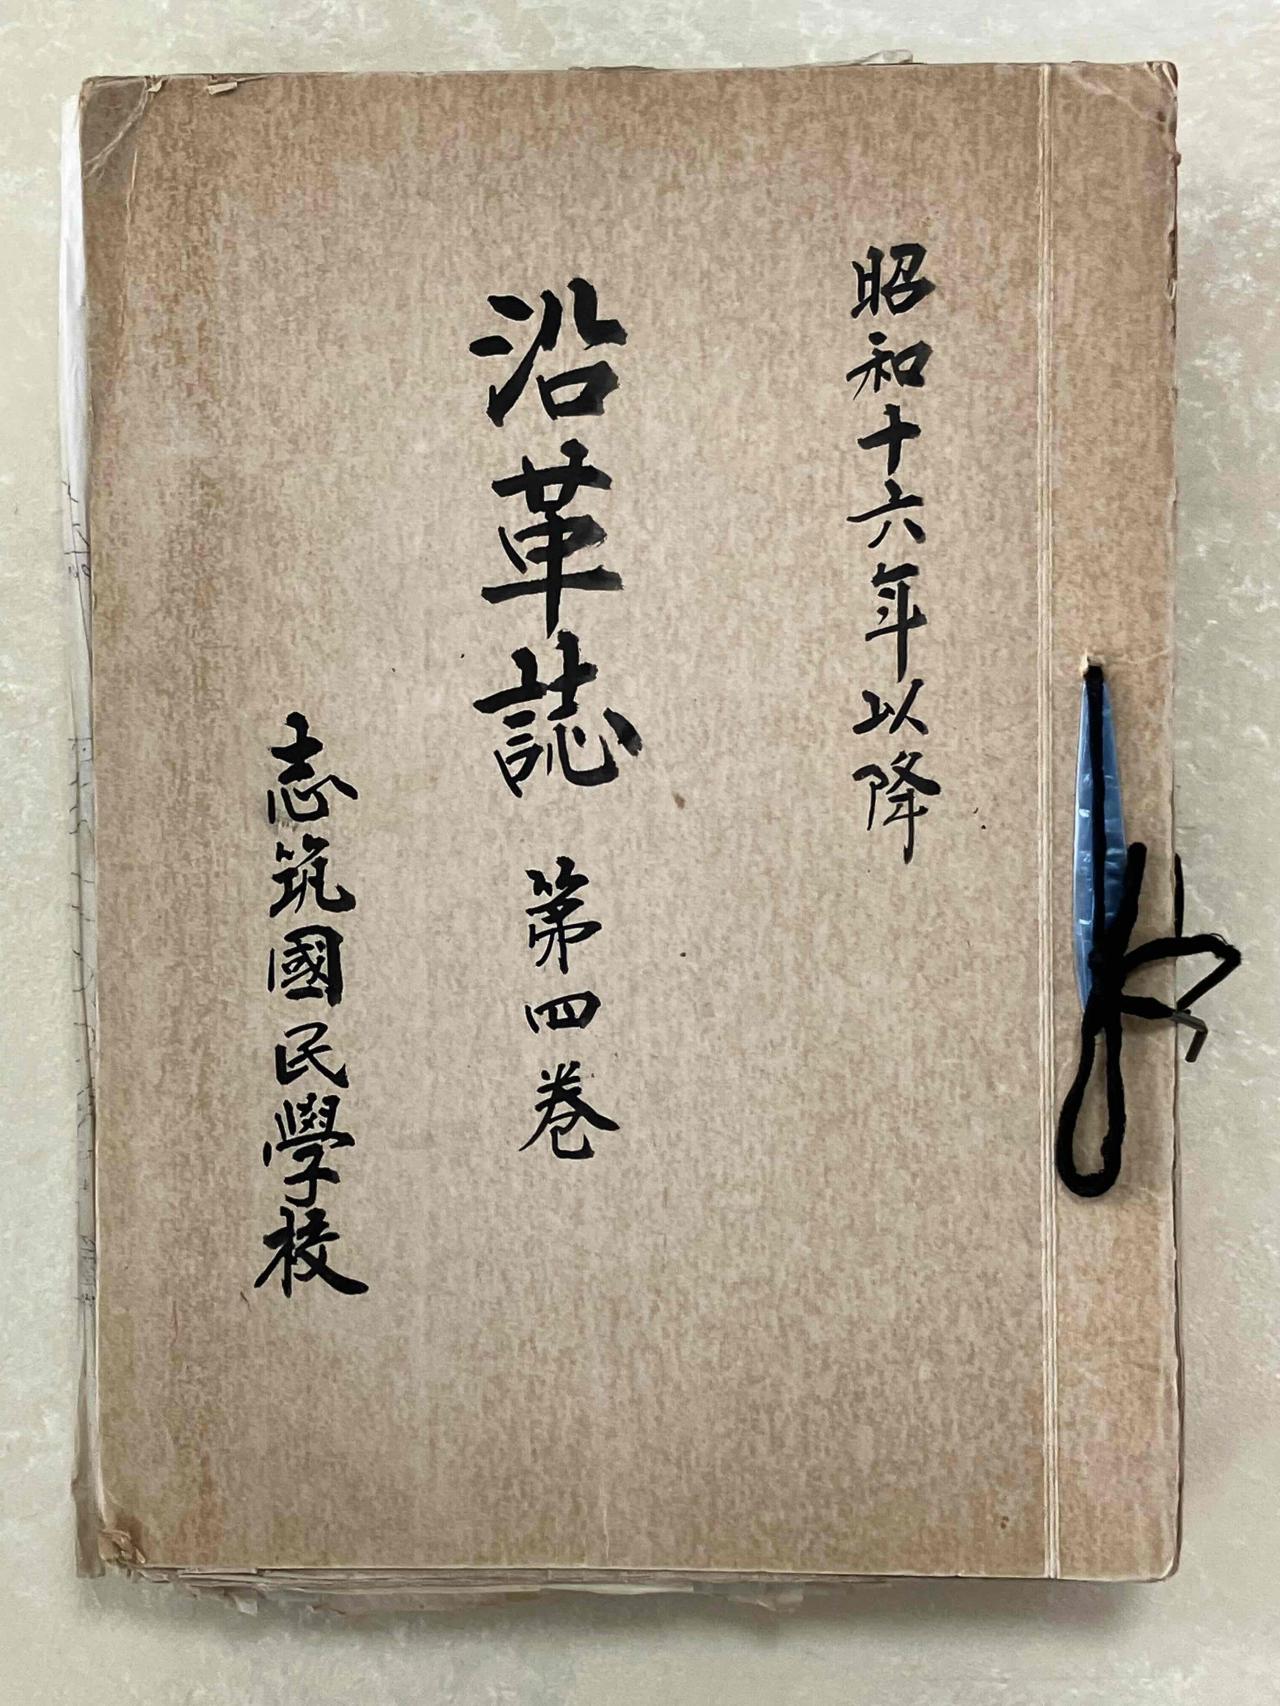 昭和十六年以降
沿革誌 第四巻
志筑國民學校